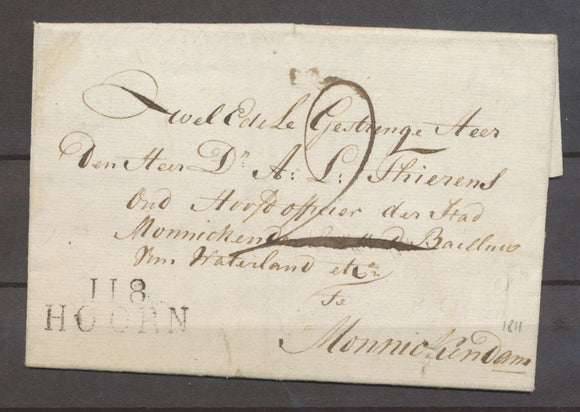 Wel Edele Gestrenge Heer
Den Heer Dr. A: L: Thierens
Oud Hoofdofficier der Stad
Monnickend Bailluw
Van Waterland etc
Te
Monnickendam
2
118
HOORN
1811